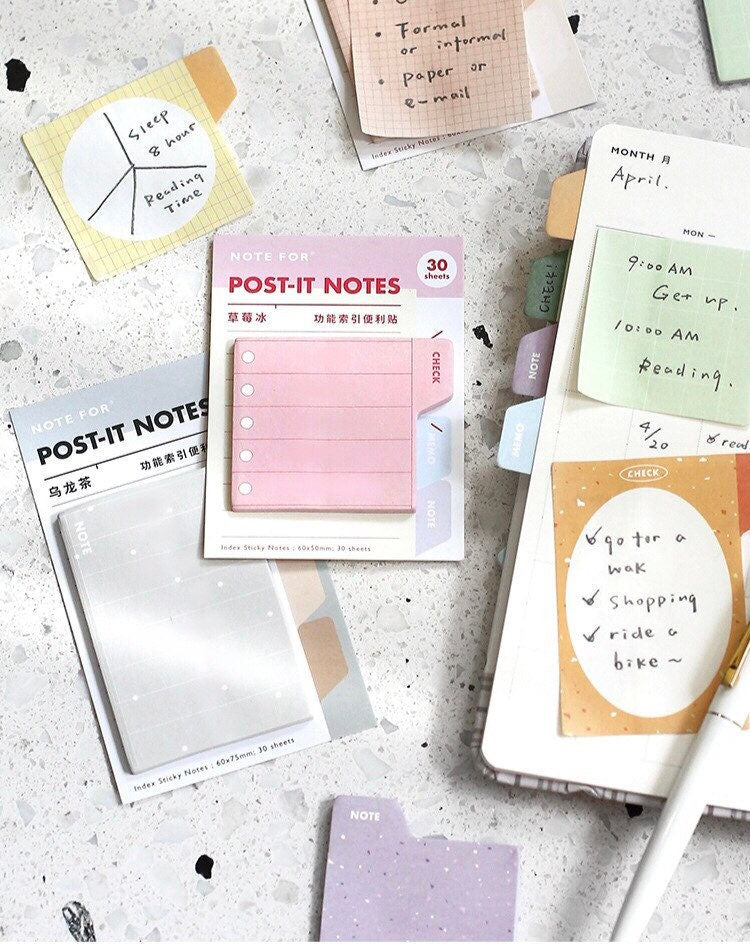 Formal
or informal
paper or
e-mail
Index Sticky Notes : 60x
Sleep
8 hour
Reading
Time
MONTH 月
April.
MON
9:00 AM
Get up.
10:00 AM
Reading.
CHECK!
NOTE
MEMO
4/20
read
CHECK
go for a
wak
shopping
ride a
bike ~
NOTE FOR
POST-IT NOTES
30
sheets
草莓冰
功能索引便利贴
CHECK
MEMO
NOTE
Index Sticky Notes : 60x50mm; 30 sheets
NOTE FOR
POST-IT NOTES
乌龙茶
功能索引便利
NOTE
Index Sticky Notes : 60x75mm; 30 sheets
NOTE